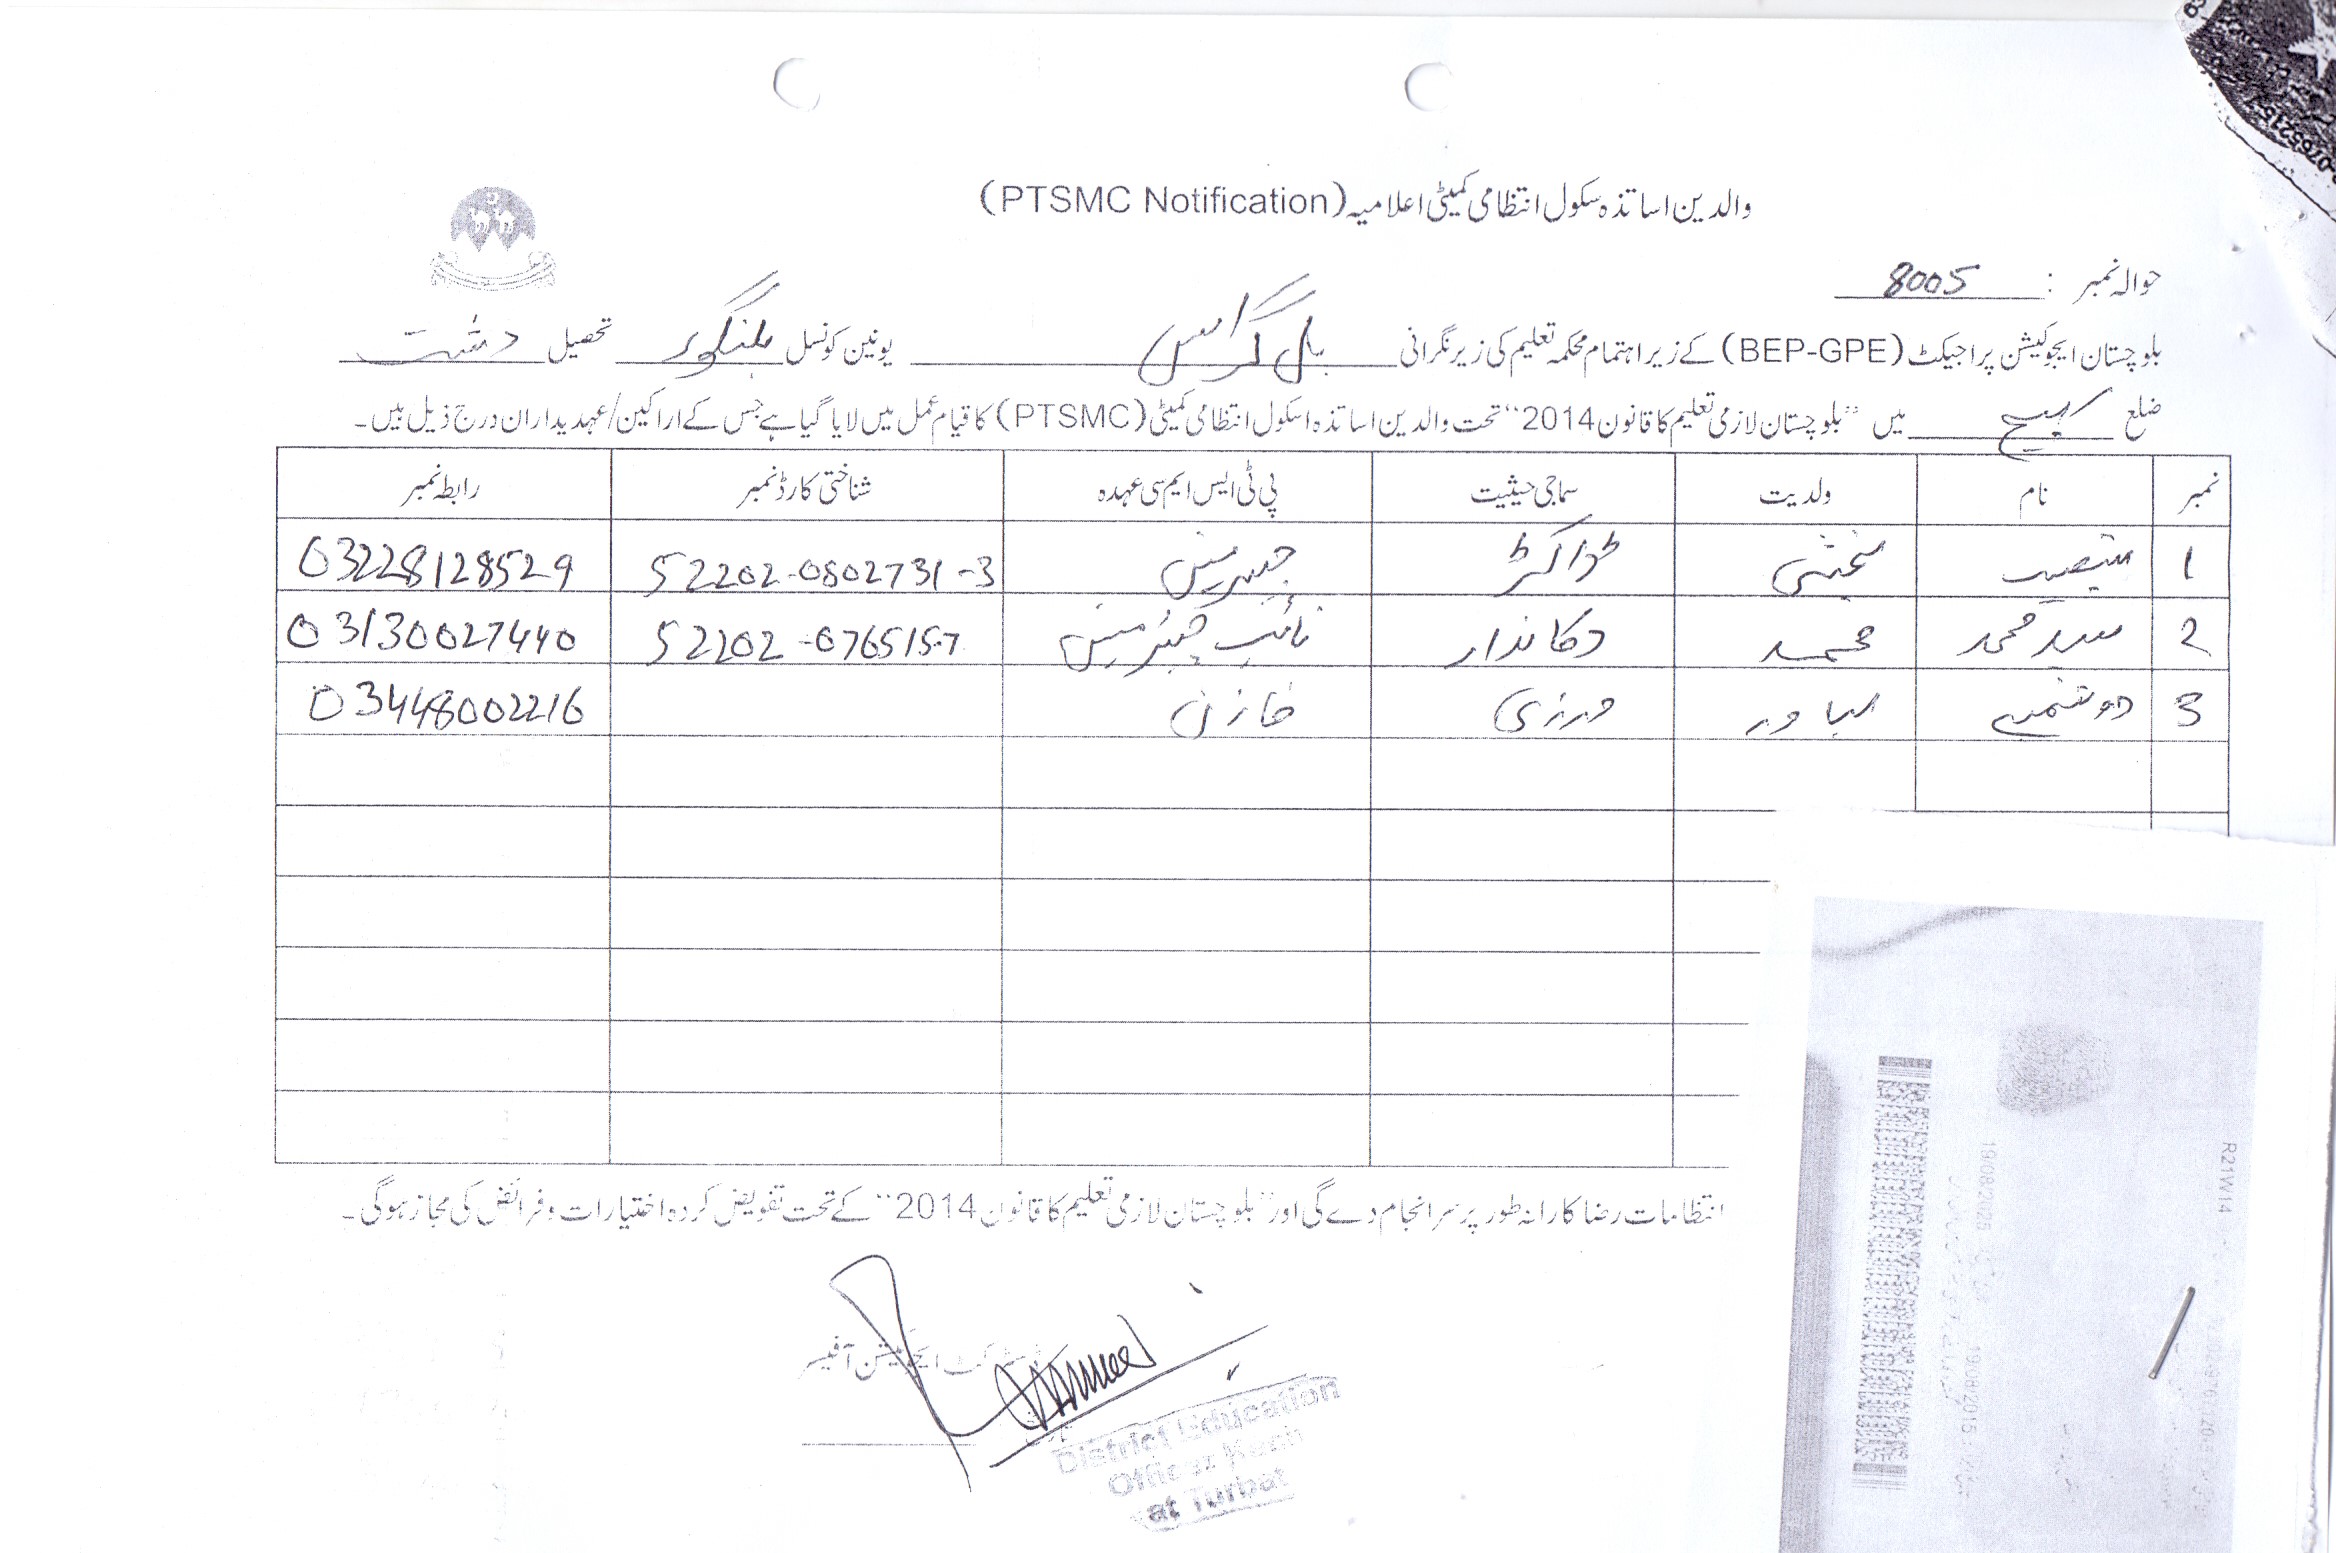 والدین اساتذہ سکول انتظامی کمیٹی اعلامیہ (PTSMC Notification)
حوالہ نمبر : 8005
بلوچستان ایجوکیشن پراجیکٹ (BEP-GPE) کے زیر اہتمام محکمہ تعلیم کی زیر نگرانی یونین کونسل بلنگور تحصیل دشت
ضلع کیچ میں "بلوچستان لازمی تعلیم کا قانون 2014" تحت والدین اساتذہ اسکول انتظامی کمیٹی (PTSMC) کا قیام عمل میں لایا گیا ہے جس کے اراکین/عہدیداران درج ذیل ہیں۔
نمبر نام ولدیت سماجی حیثیت پی ٹی ایس ایم سی عہدہ شناختی کارڈ نمبر رابطہ نمبر
1 ڈاکٹر چیرمین 52202-0802731-3 03228128529
2 سید محمد محمد دکاندار نائب چیئرمین 52202-0765157 03130027440
3 درزی خازن 03448002216
انتظامات رضا کارانہ طور پر سرانجام دے گی اور "بلوچستان لازمی تعلیم کا قانون 2014" کے تحت تفویض کردہ اختیارات و فرائض کی مجاز ہوگی۔
ڈسٹرکٹ ایجوکیشن آفیسر
District Education
Officer Kech
at Turbat
R21W14
19/08/2025
19/08/2015